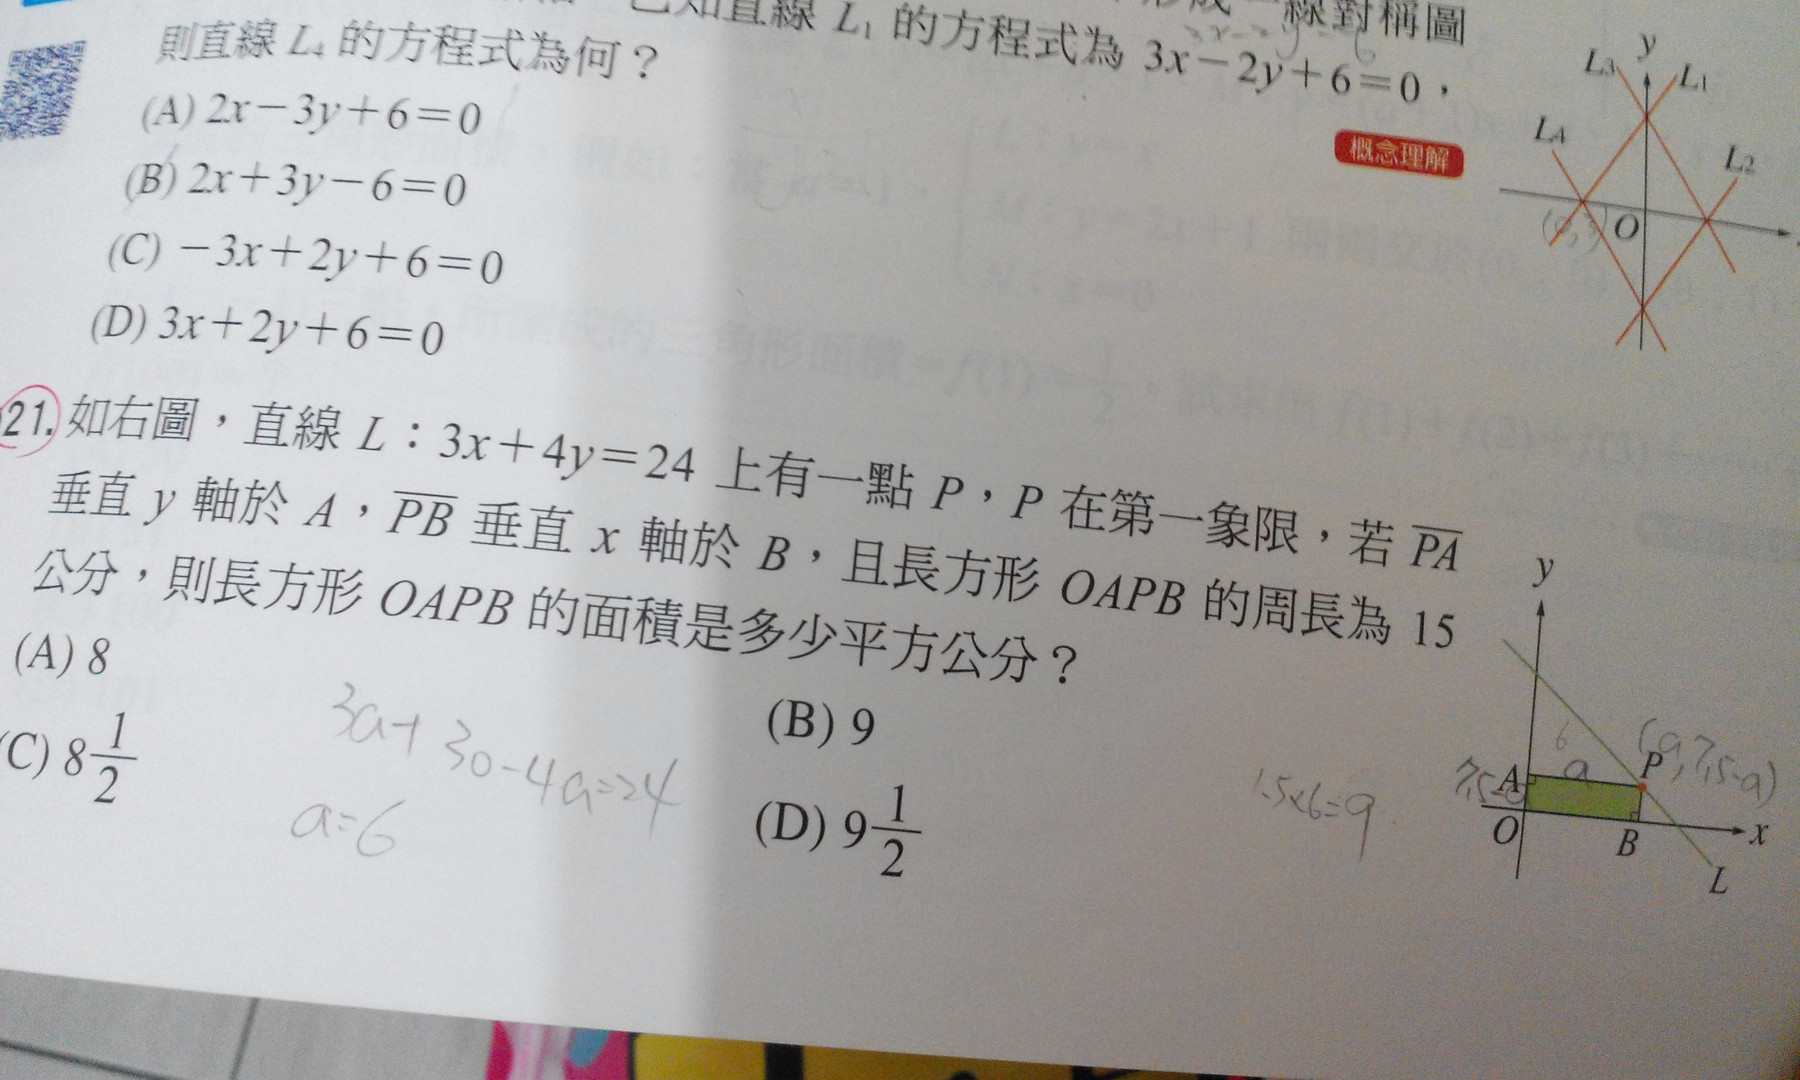 已知直線 L₁ 的方程式為 3x－2y＋6＝0，
則直線 L₄ 的方程式為何？
概念理解
(A) 2x－3y＋6＝0
(B) 2x＋3y－6＝0
(C) －3x＋2y＋6＝0
(D) 3x＋2y＋6＝0
y
L3
L1
L4
L2
O
21. 如右圖，直線 L：3x＋4y＝24 上有一點 P，P 在第一象限，若 PA
垂直 y 軸於 A，PB 垂直 x 軸於 B，且長方形 OAPB 的周長為 15
公分，則長方形 OAPB 的面積是多少平方公分？
(A) 8
(B) 9
(C) 8 1/2
(D) 9 1/2
3a+30-4a=24
a=6
1.5×6=9
y
6
a
(a,7.5-a)
A
P
O
B
x
L